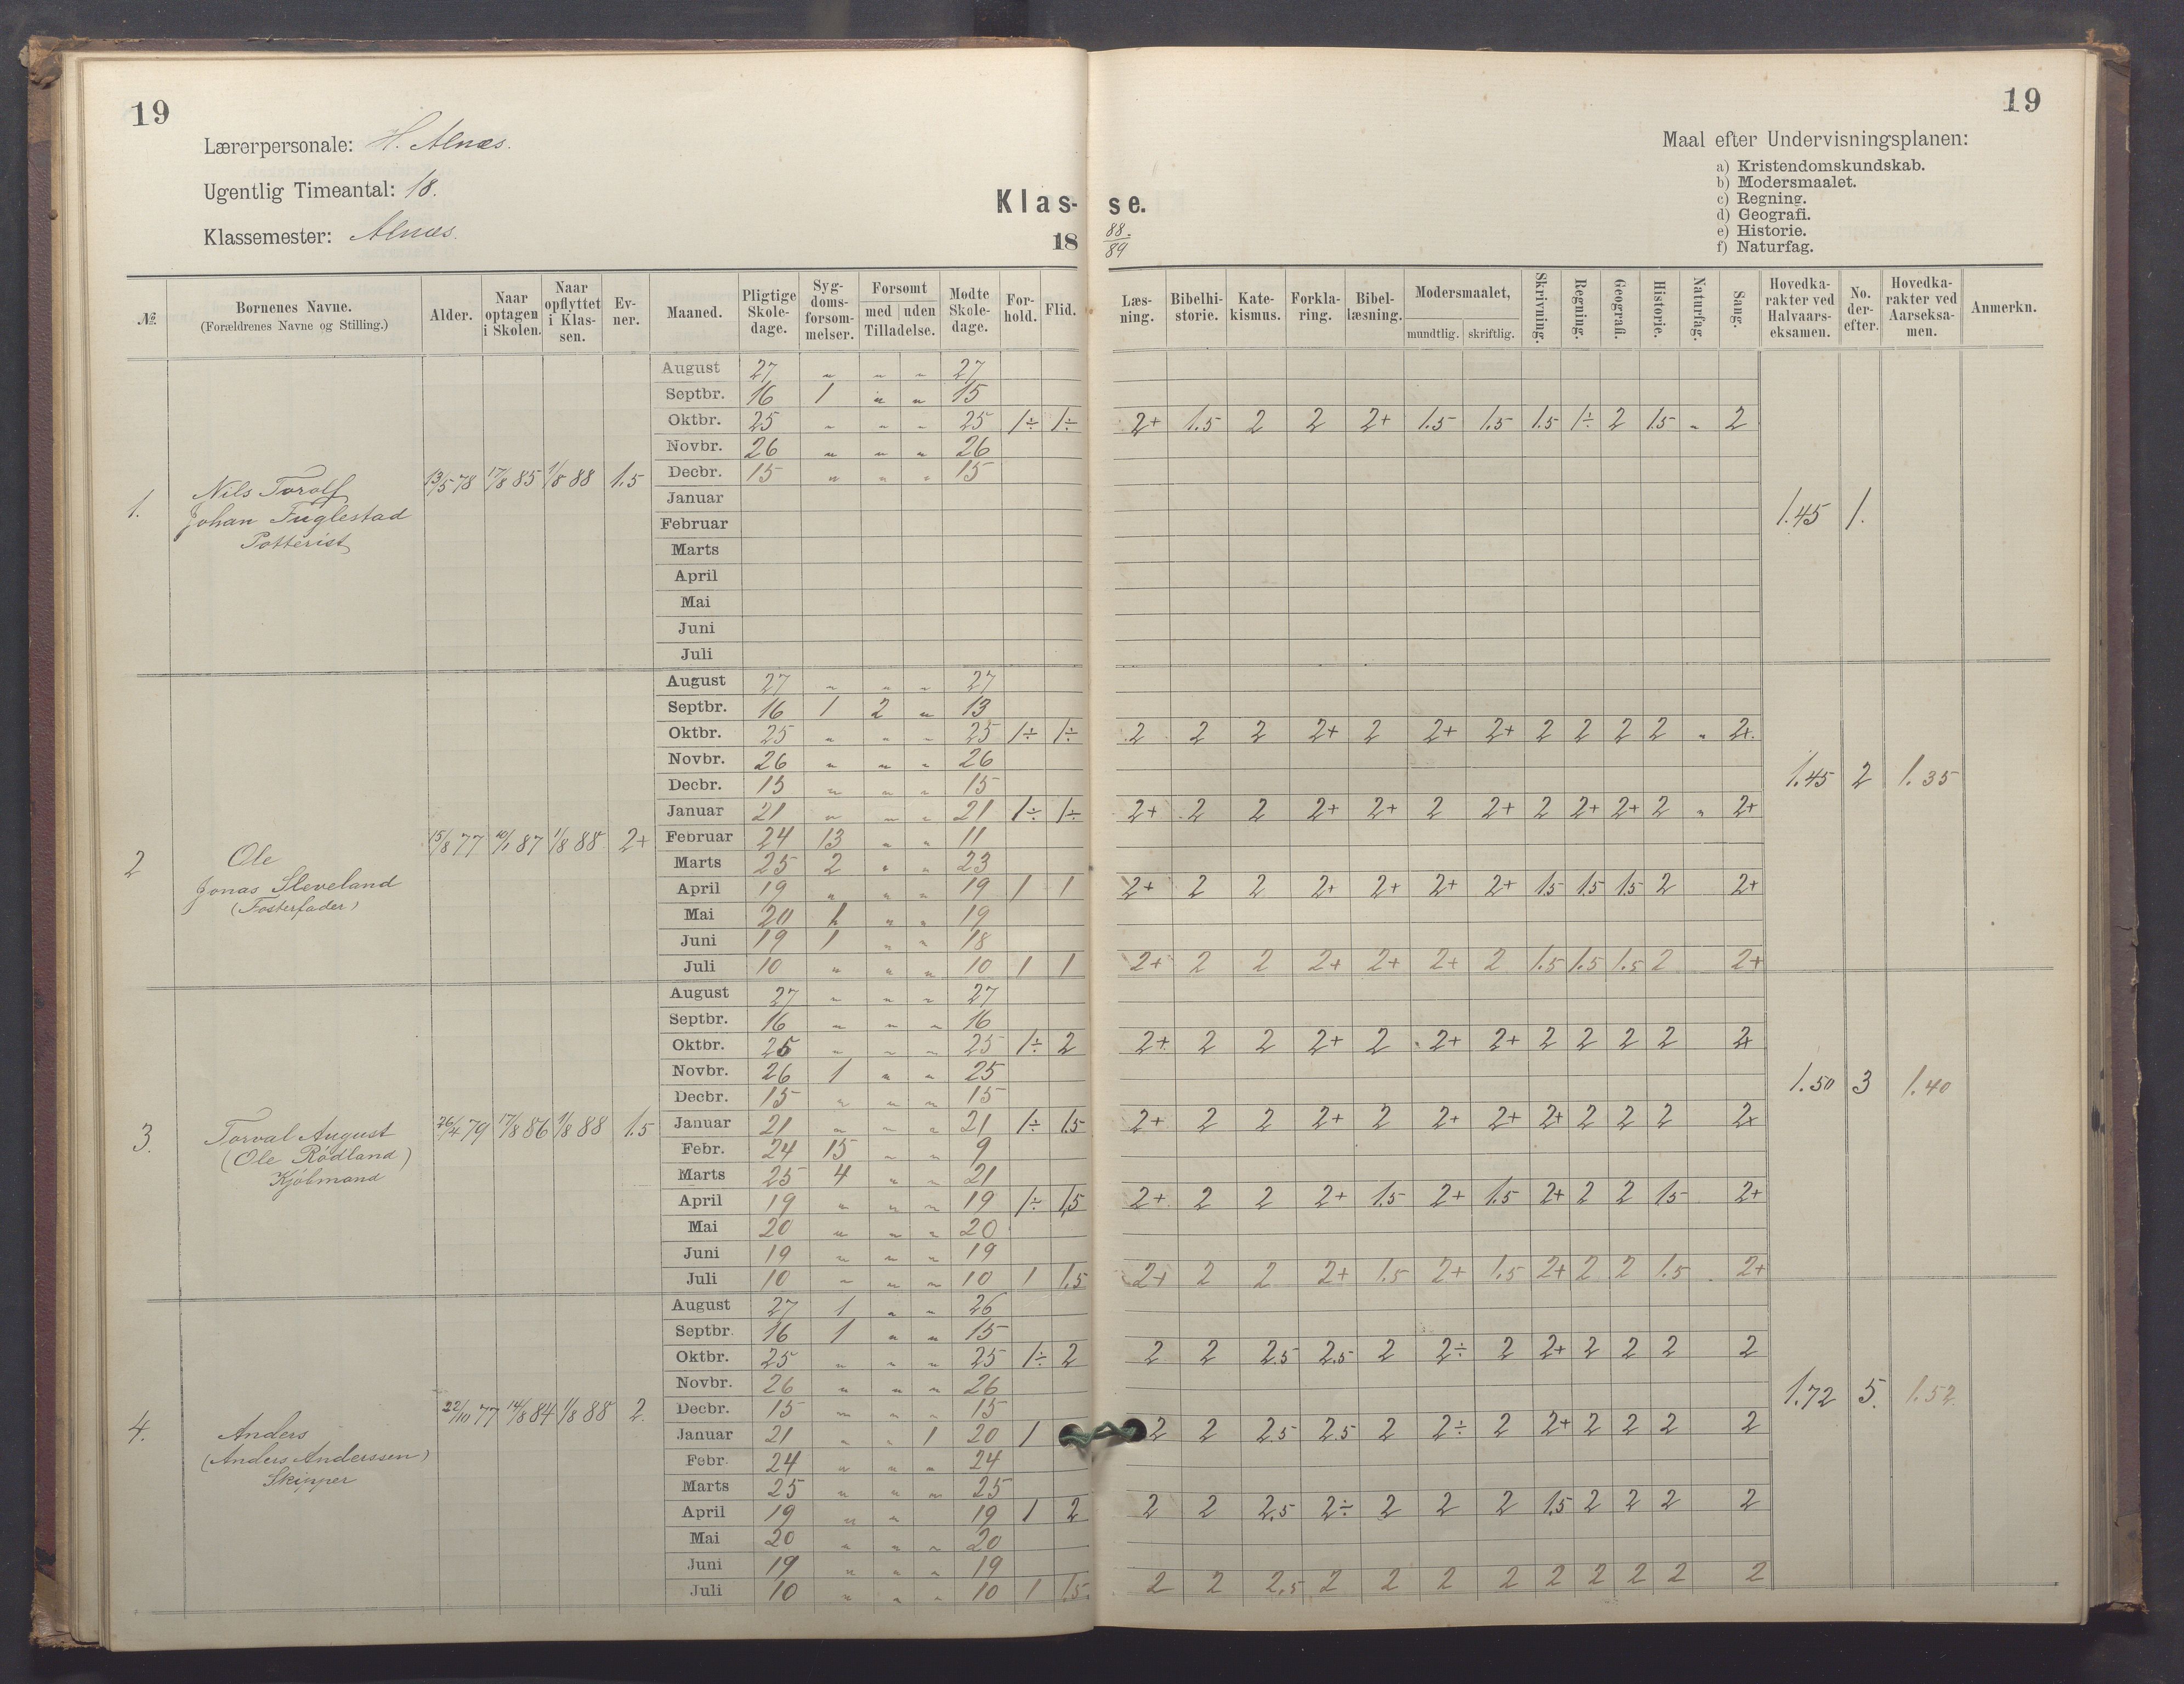 19
19
Lærerpersonale: H. Alnæs.
Ugentlig Timeantal: 18.
Klassemester: Alnæs.
Klas- se.
18 88/89
Maal efter Undervisningsplanen:
a) Kristendomskundskab.
b) Modersmaalet.
c) Regning.
d) Geografi.
e) Historie.
f) Naturfag.
№ Børnenes Navne. (Forældrenes Navne og Stilling.) Alder. Naar optagen i Skolen. Naar opflyttet i Klassen. Evner. Maaned. Pligtige Skoledage. Sygdomsforsommelser. Forsomt med uden Tilladelse. Mødte Skoledage. Forhold. Flid. Læsning. Bibelhistorie. Katekismus. Forklaring. Bibellæsning. Modersmaalet, mundtlig. skriftlig. Skrivning. Regning. Geografi. Historie. Naturfag. Sang. Hovedkarakter ved Halvaarseksamen. No. derefter. Hovedkarakter ved Aarseksamen. Anmerkn.
1. Nils Torolf
Johan Fuglestad
Potterist
13/5 78 17/8 85 1/8 88 1.5
August 27 " " " 27
Septbr. 16 1 " " 15
Oktbr. 25 " " " 25 1÷ 1÷ 2+ 1.5 2 2 2+ 1.5 1.5 1.5 1÷ 2 1.5 " 2
Novbr. 26 " " " 26
Decbr. 15 " " " 15
Januar
Februar
Marts
April
Mai
Juni
Juli
1.45 1.
2 Ole
Jonas Sleveland
(Fosterfader)
15/8 77 10/1 87 1/8 88 2+
August 27 " " " 27
Septbr. 16 1 2 " 13
Oktbr. 25 " " " 25 1÷ 1÷ 2 2 2 2+ 2 2+ 2+ 2 2 2 2 " 2+
Novbr. 26 " " " 26
Decbr. 15 " " " 15
Januar 21 " " " 21 1÷ 1÷ 2+ 2 2 2+ 2+ 2 2+ 2 2+ 2+ 2 " 2+
Februar 24 13 " " 11
Marts 25 2 " " 23
April 19 " " " 19 1 1 2+ 2 2 2+ 2+ 2+ 2+ 1.5 1.5 1.5 2 2+
Mai 20 1 " " 19
Juni 19 1 " " 18
Juli 10 " " " 10 1 1 2+ 2 2 2+ 2+ 2+ 2 1.5 1.5 1.5 2 2+
1.45 2 1.35
3. Torval August
(Ole Rødland)
Kjøbmand
26/4 79 17/8 86 1/8 88 1.5
August 27 " " " 27
Septbr. 16 " " " 16
Oktbr. 25 " " " 25 1÷ 2 2+ 2 2 2+ 2 2+ 2+ 2 2 2 2 2+
Novbr. 26 1 " " 25
Decbr. 15 " " " 15
Januar 21 " " " 21 1÷ 1.5 2+ 2 2 2+ 2 2+ 2+ 2+ 2 2 2 2+
Febr. 24 15 " " 9
Marts 25 4 " " 21
April 19 " " " 19 1÷ 1.5 2+ 2 2 2+ 1.5 2+ 1.5 2+ 2 2 1.5 2+
Mai 20 " " " 20
Juni 19 " " " 19
Juli 10 " " " 10 1 1.5 2+ 2 2 2+ 1.5 2+ 1.5 2+ 2 2 1.5 2+
1.50 3 1.40
4. Anders
(Anders Anderssen)
Skipper
22/10 77 14/8 84 1/8 88 2.
August 27 1 " " 26
Septbr. 16 1 " " 15
Oktbr. 25 " " " 25 1÷ 2 2 2 2.5 2.5 2 2÷ 2 2+ 2 2 2 2
Novbr. 26 " " " 26
Decbr. 15 " " " 15
Januar 21 " " 1 20 1 2 2 2.5 2.5 2 2÷ 2 2+ 2 2 2 2
Febr. 24 " " " 24
Marts 25 " " " 25
April 19 " " 19 1 2 2 2 2.5 2÷ 2 2 2 1.5 2 2 2 2
Mai 20 " " " 20
Juni 19 " " " 19
Juli 10 " " " 10 1 1.5 2 2 2.5 2 2 2 2 2 2 2 2 2
1.72 5. 1.52